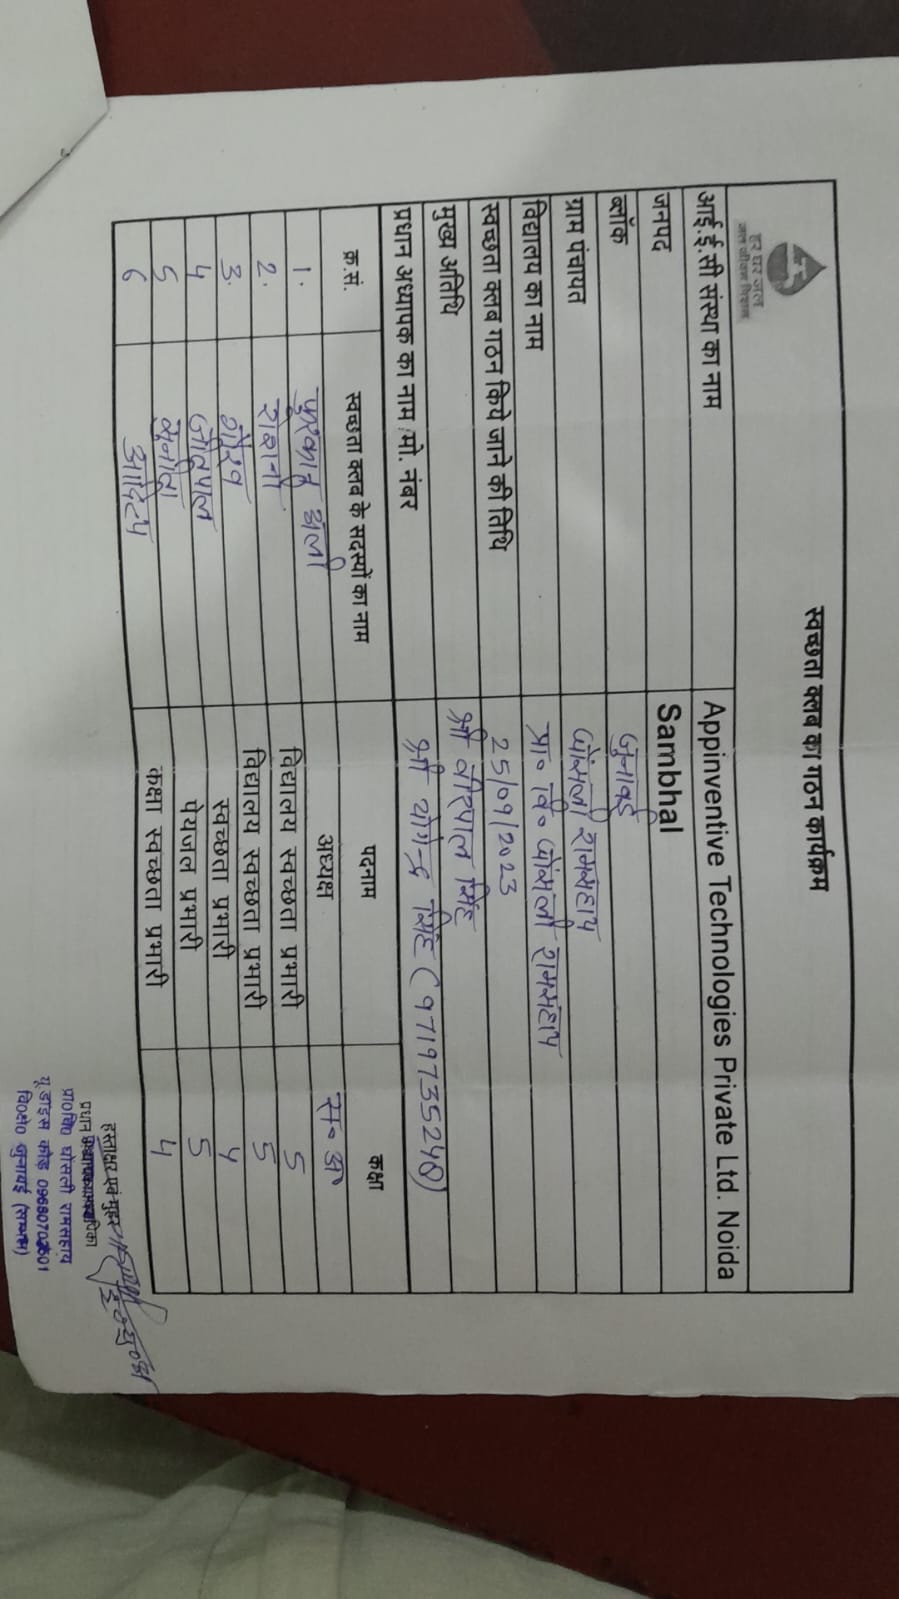 हर घर जल
जल जीवन मिशन
स्वच्छता क्लब का गठन कार्यक्रम
आई.ई.सी संस्था का नाम Appinventive Technologies Private Ltd. Noida
जनपद Sambhal
ब्लॉक जुनावई
ग्राम पंचायत घोंसली रामसहाय
विद्यालय का नाम प्रा० वि० घोंसली रामसहाय
स्वच्छता क्लब गठन किये जाने की तिथि 25/09/2023
मुख्य अतिथि श्री वीरपाल सिंह
प्रधान अध्यापक का नाम /मो. नंबर श्री योगेन्द्र सिंह (9719735240)
क्र.सं. स्वच्छता क्लब के सदस्यों का नाम पदनाम कक्षा
1. अली अध्यक्ष स० अ०
2. रोशनी विद्यालय स्वच्छता प्रभारी 5
3. गौरव विद्यालय स्वच्छता प्रभारी 5
4 स्वच्छता प्रभारी 4
5 पेयजल प्रभारी 5
6 आदित्य कक्षा स्वच्छता प्रभारी 4
हस्ताक्षर एवं मुहर
प्रा०वि० घोंसली रामसहाय
यू डाइस कोड
वि०क्षे० जुनावई (सम्भल)